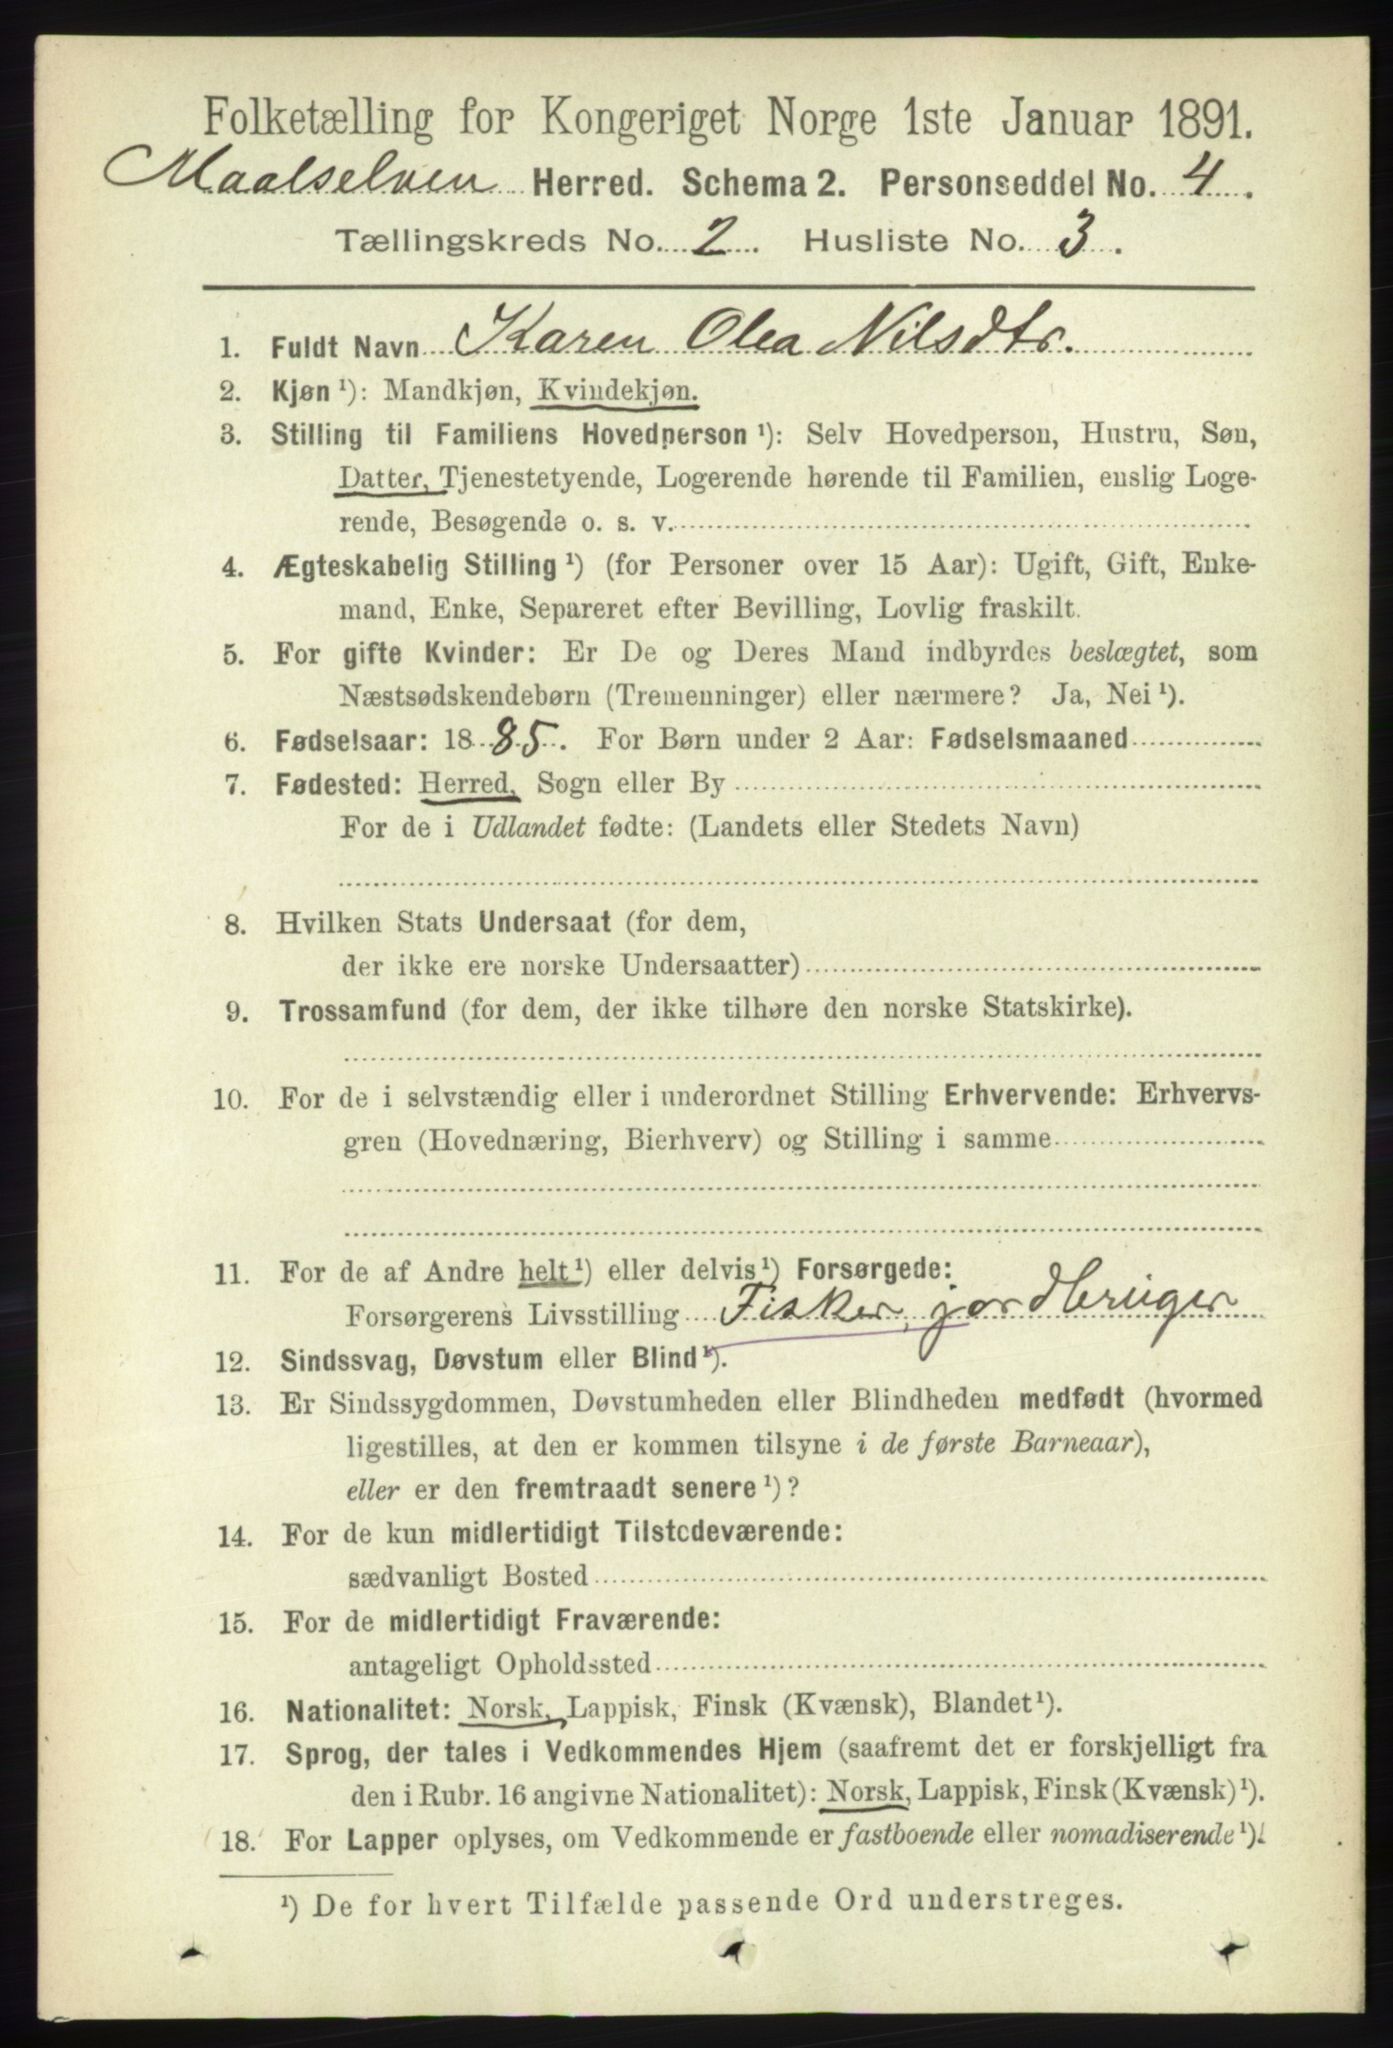 Folketælling for Kongeriget Norge 1ste Januar 1891.
Maalselven Herred. Schema 2. Personseddel No. 4.
Tællingskreds No. 2. Husliste No. 3.
1. Fuldt Navn Karen Olea Nilsdtr.
2. Kjøn ¹): Mandkjøn, Kvindekjøn.
3. Stilling til Familiens Hovedperson ¹): Selv Hovedperson, Hustru, Søn,
Datter, Tjenestetyende, Logerende hørende til Familien, enslig Loge-
rende, Besøgende o. s. v.
4. Ægteskabelig Stilling ¹) (for Personer over 15 Aar): Ugift, Gift, Enke-
mand, Enke, Separeret efter Bevilling, Lovlig fraskilt.
5. For gifte Kvinder: Er De og Deres Mand indbyrdes beslægtet, som
Næstsødskendebørn (Tremenninger) eller nærmere? Ja, Nei ¹).
6. Fødselsaar: 1885. For Børn under 2 Aar: Fødselsmaaned
7. Fødested: Herred, Sogn eller By
For de i Udlandet fødte: (Landets eller Stedets Navn)
8. Hvilken Stats Undersaat (for dem,
der ikke ere norske Undersaatter)
9. Trossamfund (for dem, der ikke tilhøre den norske Statskirke).
10. For de i selvstændig eller i underordnet Stilling Erhvervende: Erhvervs-
gren (Hovednæring, Bierhverv) og Stilling i samme
11. For de af Andre helt ¹) eller delvis ¹) Forsørgede:
Forsørgerens Livsstilling Fisker, jordbruger
12. Sindssvag, Døvstum eller Blind ¹).
13. Er Sindssygdommen, Døvstumheden eller Blindheden medfødt (hvormed
ligestilles, at den er kommen tilsyne i de første Barneaar),
eller er den fremtraadt senere ¹)?
14. For de kun midlertidigt Tilstedeværende:
sædvanligt Bosted
15. For de midlertidigt Fraværende:
antageligt Opholdssted
16. Nationalitet: Norsk, Lappisk, Finsk (Kvænsk), Blandet ¹).
17. Sprog, der tales i Vedkommendes Hjem (saafremt det er forskjelligt fra
den i Rubr. 16 angivne Nationalitet): Norsk, Lappisk, Finsk (Kvænsk) ¹).
18. For Lapper oplyses, om Vedkommende er fastboende eller nomadiserende ¹).
¹) De for hvert Tilfælde passende Ord understreges.